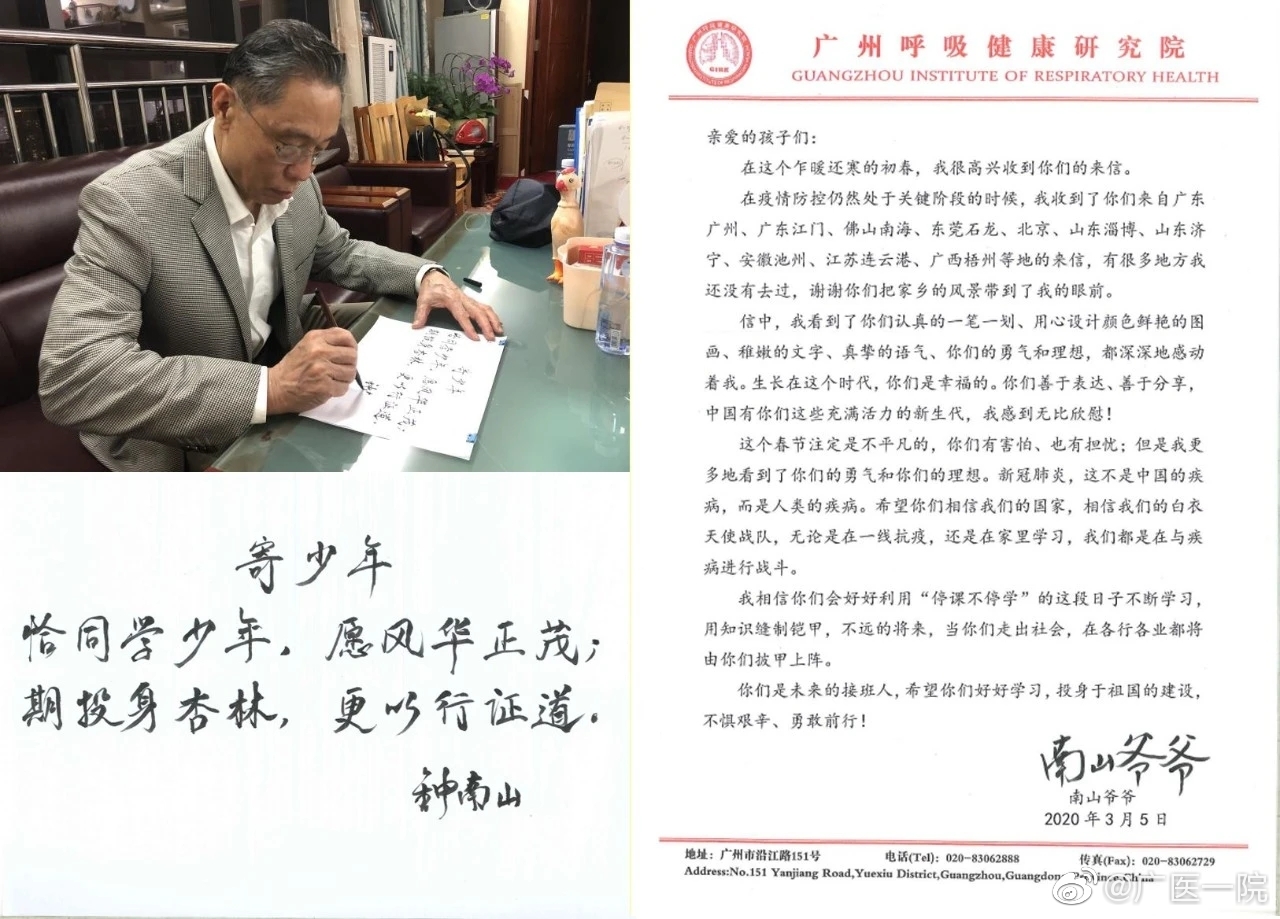 寄少年
恰同学少年，愿风华正茂；
期投身杏林，更以行证道。
钟南山
广州呼吸健康研究院
GUANGZHOU INSTITUTE OF RESPIRATORY HEALTH
亲爱的孩子们：
在这个乍暖还寒的初春，我很高兴收到你们的来信。
在疫情防控仍然处于关键阶段的时候，我收到了你们来自广东
广州、广东江门、佛山南海、东莞石龙、北京、山东淄博、山东济
宁、安徽池州、江苏连云港、广西梧州等地的来信，有很多地方我
还没有去过，谢谢你们把家乡的风景带到了我的眼前。
信中，我看到了你们认真的一笔一划、用心设计颜色鲜艳的图
画、稚嫩的文字、真挚的语气、你们的勇气和理想，都深深地感动
着我。生长在这个时代，你们是幸福的。你们善于表达、善于分享，
中国有你们这些充满活力的新生代，我感到无比欣慰！
这个春节注定是不平凡的，你们有害怕、也有担忧；但是我更
多地看到了你们的勇气和你们的理想。新冠肺炎，这不是中国的疾
病，而是人类的疾病。希望你们相信我们的国家，相信我们的白衣
天使战队，无论是在一线抗疫，还是在家里学习，我们都是在与疾
病进行战斗。
我相信你们会好好利用“停课不停学”的这段日子不断学习，
用知识缝制铠甲，不远的将来，当你们走出社会，在各行各业都将
由你们披甲上阵。
你们是未来的接班人，希望你们好好学习，投身于祖国的建设，
不惧艰辛、勇敢前行！
南山爷爷
南山爷爷
2020年3月5日
地址：广州市沿江路151号 电话(Tel)：020-83062888 传真(Fax)：020-83062729
Address:No.151 Yanjiang Road,Yuexiu District,Guangzhou,Guangdong Province,China
@广医一院